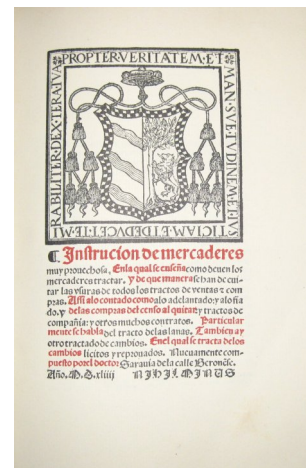 PROPTER VERITATEM ET
MANSVETVDINEM ET IVS
TICIAM ET DEDVCET TE MI
RABILITER DEXTERA TVA
¶ Instrucion de mercaderes
muy prouechosa, En la qual se enseña como deuen los
mercaderes tractar. Y de que manera se han de eui
tar las vsuras de todos los tractos de ventas o com
pras. Assi alo contado como alo adelantado: y alo fia
do. y delas compras del censo al quitar: y tractos de
compañia: y otros muchos contratos. Particular
mente se habla del tracto delas lanas. Tambien ay
otro tratado de cambios. En el qual se tracta delos
cambios licitos y reprouados. Nueuamente com-
puesto por el doctor Sarauia dela calle Veronēse.
Año. M. D. xliiij NIHIL MINUS